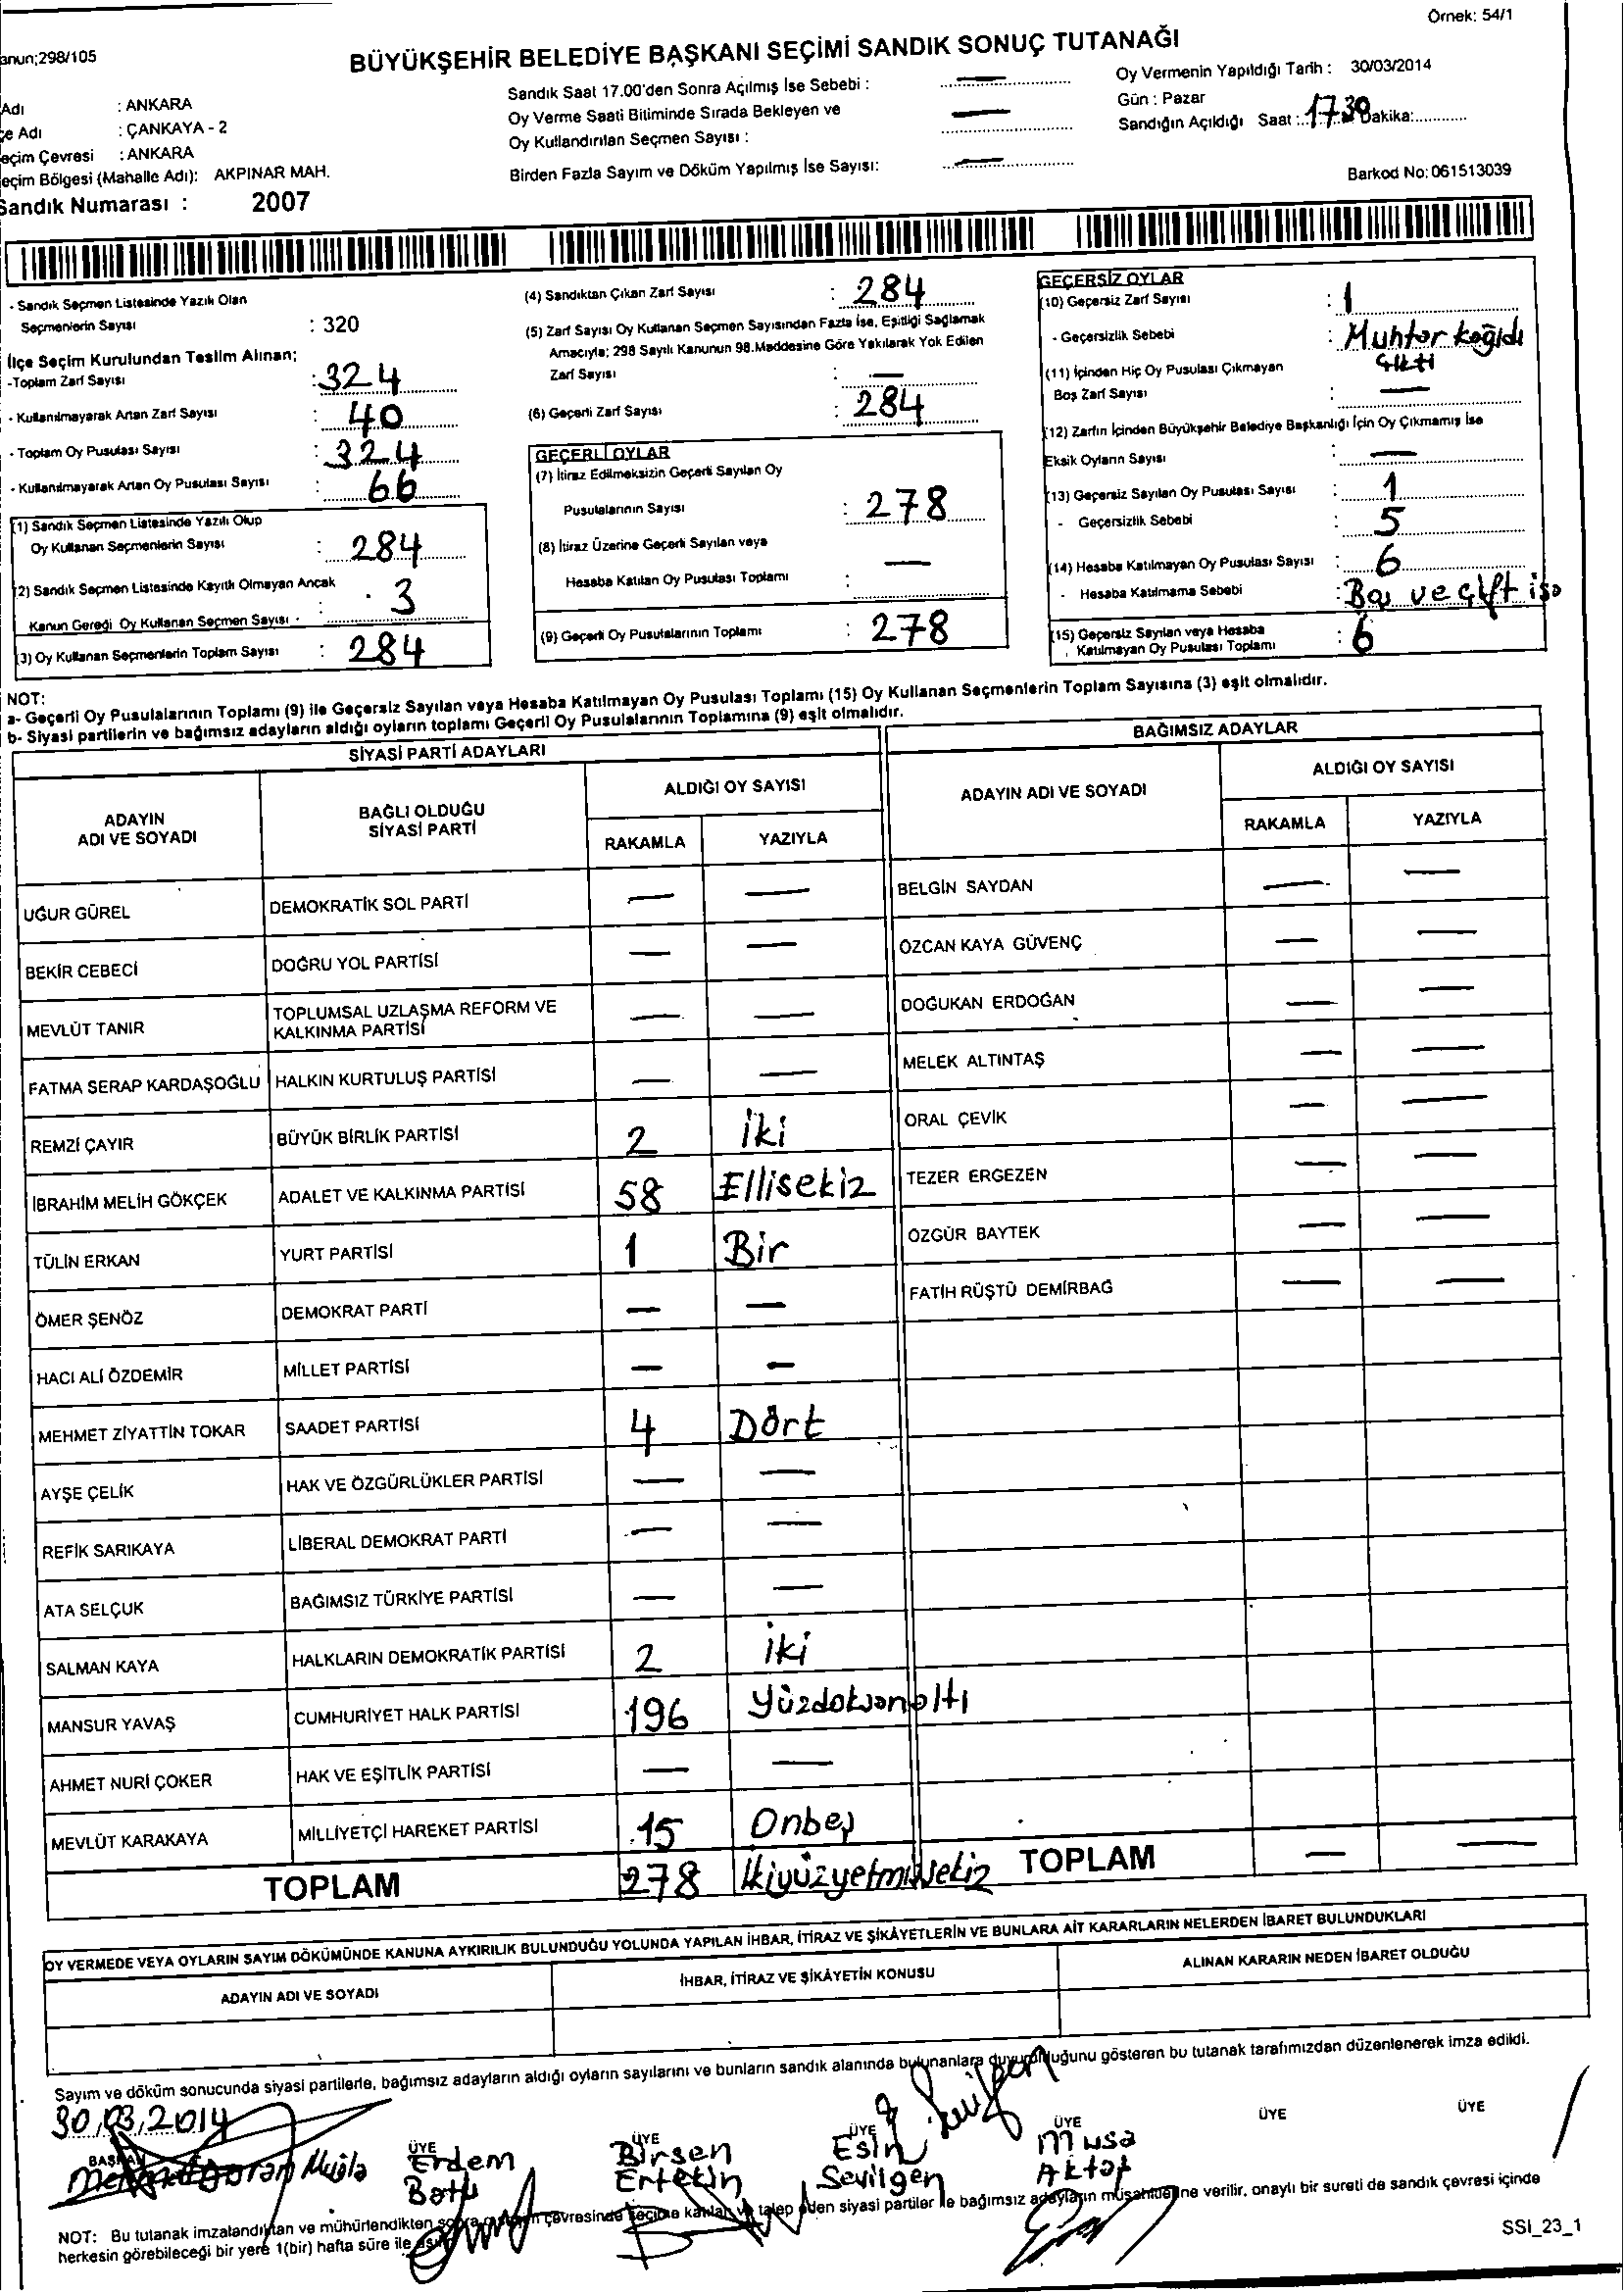 Örnek: 54/1
anun;298/105
BÜYÜKŞEHİR BELEDİYE BAŞKANI SEÇİMİ SANDIK SONUÇ TUTANAĞI
Adı : ANKARA
çe Adı : ÇANKAYA - 2
eçim Çevresi : ANKARA
eçim Bölgesi (Mahalle Adı): AKPINAR MAH.
Sandık Numarası : 2007
Sandık Saat 17.00'den Sonra Açılmış İse Sebebi : —
Oy Verme Saati Bitiminde Sırada Bekleyen ve
Oy Kullandırılan Seçmen Sayısı : —
Birden Fazla Sayım ve Döküm Yapılmış İse Sayısı: —
Oy Vermenin Yapıldığı Tarih : 30/03/2014
Gün : Pazar
Sandığın Açıldığı Saat : 17.30 Dakika:
Barkod No: 061513039
- Sandık Seçmen Listesinde Yazılı Olan
Seçmenlerin Sayısı : 320
İlçe Seçim Kurulundan Teslim Alınan;
-Toplam Zarf Sayısı : 324
- Kullanılmayarak Artan Zarf Sayısı : 40
- Toplam Oy Pusulası Sayısı : 324
- Kullanılmayarak Artan Oy Pusulası Sayısı : 66
(1) Sandık Seçmen Listesinde Yazılı Olup
Oy Kullanan Seçmenlerin Sayısı : 284
(2) Sandık Seçmen Listesinde Kayıtlı Olmayan Ancak
Kanun Gereği Oy Kullanan Seçmen Sayısı : 3
(3) Oy Kullanan Seçmenlerin Toplam Sayısı : 284
(4) Sandıktan Çıkan Zarf Sayısı : 284
(5) Zarf Sayısı Oy Kullanan Seçmen Sayısından Fazla İse, Eşitliği Sağlamak
Amacıyla; 298 Sayılı Kanunun 98.Maddesine Göre Yakılarak Yok Edilen
Zarf Sayısı : —
(6) Geçerli Zarf Sayısı : 284
GEÇERLİ OYLAR
(7) İtiraz Edilmeksizin Geçerli Sayılan Oy
Pusulalarının Sayısı : 278
(8) İtiraz Üzerine Geçerli Sayılan veya
Hesaba Katılan Oy Pusulası Toplamı : —
(9) Geçerli Oy Pusulalarının Toplamı : 278
GEÇERSİZ OYLAR
(10) Geçersiz Zarf Sayısı : 1
- Geçersizlik Sebebi : Muhtar kağıdı
çıktı
(11) İçinden Hiç Oy Pusulası Çıkmayan
Boş Zarf Sayısı : —
(12) Zarfın İçinden Büyükşehir Belediye Başkanlığı İçin Oy Çıkmamış İse
Eksik Oyların Sayısı : —
(13) Geçersiz Sayılan Oy Pusulası Sayısı : 1
- Geçersizlik Sebebi : 5
(14) Hesaba Katılmayan Oy Pusulası Sayısı : 6
- Hesaba Katılmama Sebebi : Boş ve çift
(15) Geçersiz Sayılan veya Hesaba
Katılmayan Oy Pusulası Toplamı : 6
NOT:
a- Geçerli Oy Pusulalarının Toplamı (9) ile Geçersiz Sayılan veya Hesaba Katılmayan Oy Pusulası Toplamı (15) Oy Kullanan Seçmenlerin Toplam Sayısına (3) eşit olmalıdır.
b- Siyasi partilerin ve bağımsız adayların aldığı oyların toplamı Geçerli Oy Pusulalarının Toplamına (9) eşit olmalıdır.
SİYASİ PARTİ ADAYLARI
ADAYIN ADI VE SOYADI BAĞLI OLDUĞU SİYASİ PARTİ ALDIĞI OY SAYISI
RAKAMLA YAZIYLA
UĞUR GÜREL DEMOKRATİK SOL PARTİ — —
BEKİR CEBECİ DOĞRU YOL PARTİSİ — —
MEVLÜT TANIR TOPLUMSAL UZLAŞMA REFORM VE KALKINMA PARTİSİ — —
FATMA SERAP KARDAŞOĞLU HALKIN KURTULUŞ PARTİSİ — —
REMZİ ÇAYIR BÜYÜK BİRLİK PARTİSİ 2 iki
İBRAHİM MELİH GÖKÇEK ADALET VE KALKINMA PARTİSİ 58 Ellisekiz
TÜLİN ERKAN YURT PARTİSİ 1 Bir
ÖMER ŞENÖZ DEMOKRAT PARTİ — —
HACI ALİ ÖZDEMİR MİLLET PARTİSİ — —
MEHMET ZİYATTİN TOKAR SAADET PARTİSİ 4 Dört
AYŞE ÇELİK HAK VE ÖZGÜRLÜKLER PARTİSİ — —
REFİK SARIKAYA LİBERAL DEMOKRAT PARTİ — —
ATA SELÇUK BAĞIMSIZ TÜRKİYE PARTİSİ — —
SALMAN KAYA HALKLARIN DEMOKRATİK PARTİSİ 2 iki
MANSUR YAVAŞ CUMHURİYET HALK PARTİSİ 196 Yüzdoksanaltı
AHMET NURİ ÇOKER HAK VE EŞİTLİK PARTİSİ — —
MEVLÜT KARAKAYA MİLLİYETÇİ HAREKET PARTİSİ 15 Onbeş
TOPLAM 278 İkiyüzyetmişsekiz
BAĞIMSIZ ADAYLAR
ADAYIN ADI VE SOYADI ALDIĞI OY SAYISI
RAKAMLA YAZIYLA
BELGİN SAYDAN — —
ÖZCAN KAYA GÜVENÇ — —
DOĞUKAN ERDOĞAN — —
MELEK ALTINTAŞ — —
ORAL ÇEVİK — —
TEZER ERGEZEN — —
ÖZGÜR BAYTEK — —
FATİH RÜŞTÜ DEMİRBAĞ — —
TOPLAM — —
OY VERMEDE VEYA OYLARIN SAYIM DÖKÜMÜNDE KANUNA AYKIRILIK BULUNDUĞU YOLUNDA YAPILAN İHBAR, İTİRAZ VE ŞİKÂYETLERİN VE BUNLARA AİT KARARLARIN NELERDEN İBARET BULUNDUKLARI
ADAYIN ADI VE SOYADI İHBAR, İTİRAZ VE ŞİKÂYETİN KONUSU ALINAN KARARIN NEDEN İBARET OLDUĞU
Sayım ve döküm sonucunda siyasi partilerle, bağımsız adayların aldığı oyların sayılarını ve bunların sandık alanında bulunanlara duyurulduğunu gösteren bu tutanak tarafımızdan düzenlenerek imza edildi.
30.03.2014
BAŞKAN ÜYE ÜYE ÜYE ÜYE ÜYE ÜYE
Erdem Birsen Esin Musa
Ertekin Sevilgen Aktaş
NOT: Bu tutanak imzalandıktan ve mühürlendikten sonra çevresinde seçime katılan ve talep eden siyasi partiler ile bağımsız adayların müşahitlerine verilir, onaylı bir sureti de sandık çevresi içinde
herkesin görebileceği bir yere 1(bir) hafta süre ile
SSI_23_1